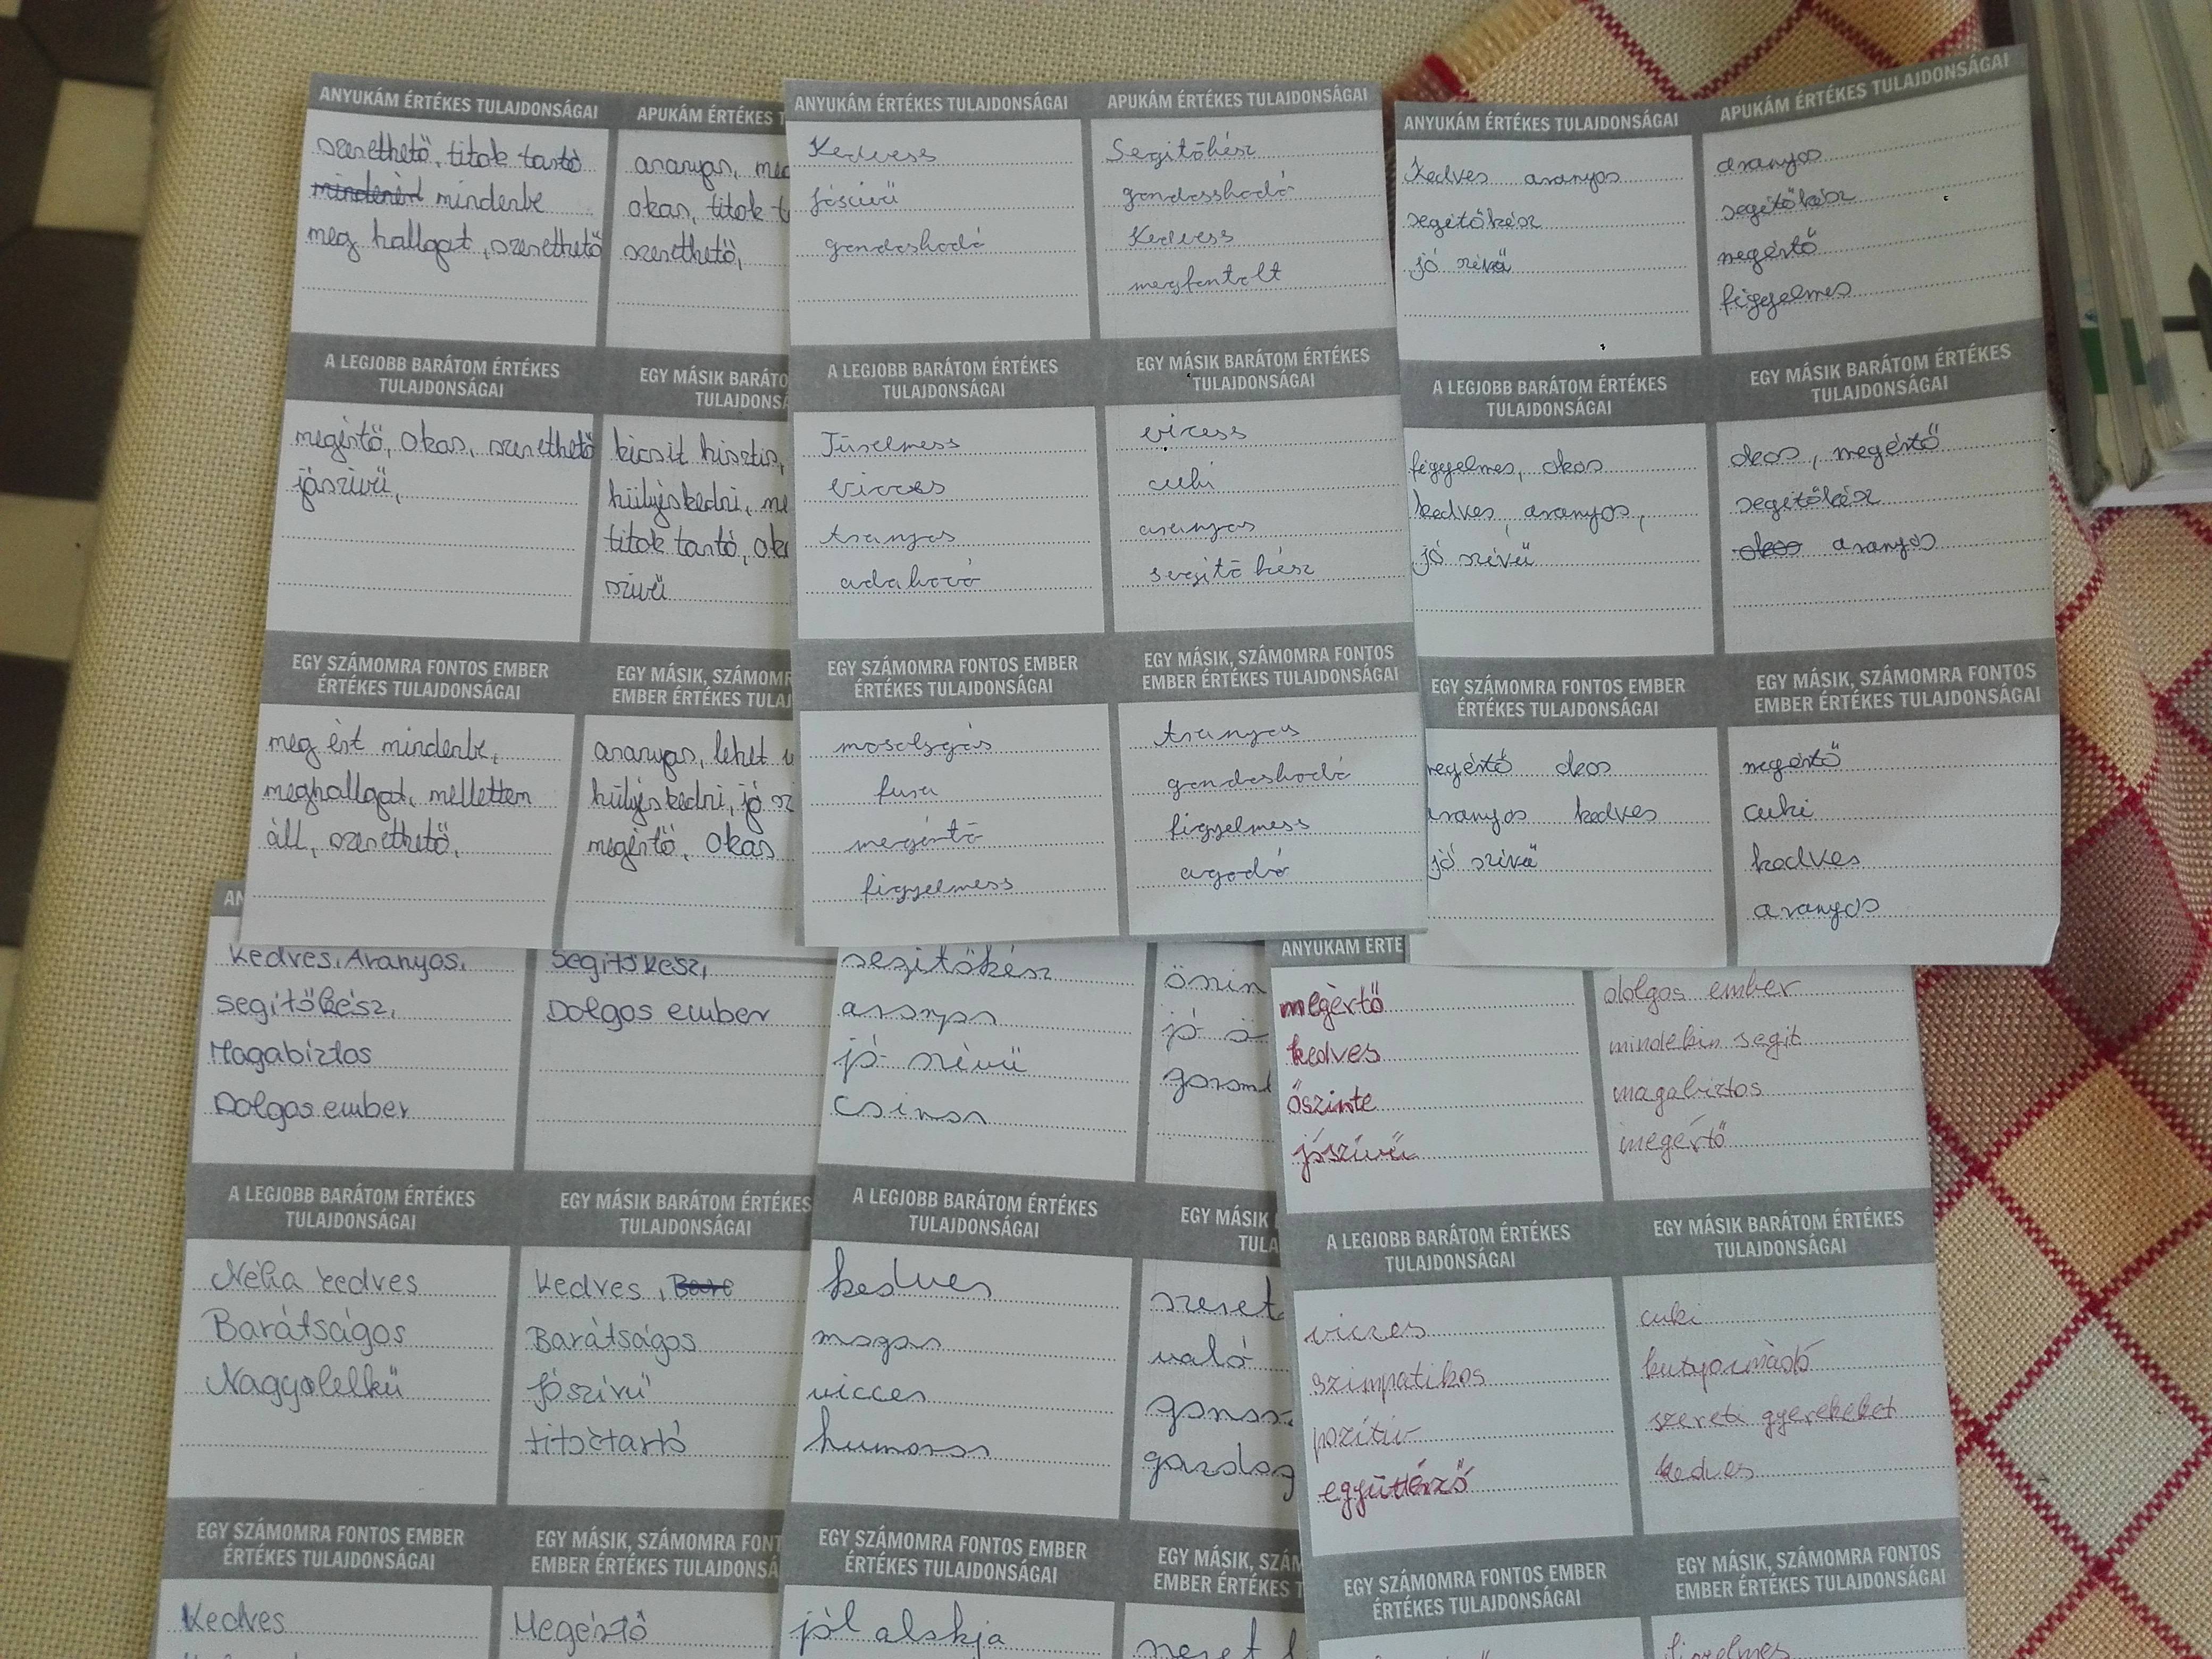 ANYUKÁM ÉRTÉKES TULAJDONSÁGAI
szerethető, titok tartó
mindenért mindenbe
meg hallgat, szerethető
APUKÁM ÉRTÉKES T
aranyos, meg
okos, titok t
szerethető,
A LEGJOBB BARÁTOM ÉRTÉKES
TULAJDONSÁGAI
megértő, okos, szerethető
jószivű,
EGY MÁSIK BARÁTO
TULAJDONSÁ
kicsit hisztis,
hülyéskedni, me
titok tartó, oko
szivű
EGY SZÁMOMRA FONTOS EMBER
ÉRTÉKES TULAJDONSÁGAI
meg ért mindenbe,
meghallgat, mellettem
áll, szerethető,
EGY MÁSIK, SZÁMOMR
EMBER ÉRTÉKES TULAJ
aranyos, lehet
hülyéskedni, jó sz
megértő, okos
ANYUKÁM ÉRTÉKES TULAJDONSÁGAI
Kedvess
jószivű
gondoskodó
APUKÁM ÉRTÉKES TULAJDONSÁGAI
Segitőkész
gondosskodó
Kedvess
megfontolt
A LEGJOBB BARÁTOM ÉRTÉKES
TULAJDONSÁGAI
Türelmess
vicces
Aranyos
odahozó
EGY MÁSIK BARÁTOM ÉRTÉKES
TULAJDONSÁGAI
vicess
cuki
aranyos
segitő kész
EGY SZÁMOMRA FONTOS EMBER
ÉRTÉKES TULAJDONSÁGAI
mosolygós
fura
megértő
figyelmess
EGY MÁSIK, SZÁMOMRA FONTOS
EMBER ÉRTÉKES TULAJDONSÁGAI
Aranyos
gondoskodó
figyelmess
ANYUKÁM ÉRTÉKES TULAJDONSÁGAI
Kedves aranyos
segítőkész
jó szívű
APUKÁM ÉRTÉKES TULAJDONSÁGAI
aranyos
segítőkész
megértő
figyelmes
A LEGJOBB BARÁTOM ÉRTÉKES
TULAJDONSÁGAI
figyelmes, okos
kedves, aranyos,
jó szívű
EGY MÁSIK BARÁTOM ÉRTÉKES
TULAJDONSÁGAI
okos, megértő
segítőkész
okos aranyos
EGY SZÁMOMRA FONTOS EMBER
ÉRTÉKES TULAJDONSÁGAI
megértő okos
aranyos kedves
jó szívű
EGY MÁSIK, SZÁMOMRA FONTOS
EMBER ÉRTÉKES TULAJDONSÁGAI
megértő
cuki
kedves
aranyos
AN
Kedves, Aranyos,
segítőkész,
Magabiztos
Dolgos ember
Segítőkész,
Dolgos ember
A LEGJOBB BARÁTOM ÉRTÉKES
TULAJDONSÁGAI
Néha kedves
Barátságos
Nagyolelkű
EGY MÁSIK BARÁTOM ÉRTÉKES
TULAJDONSÁGAI
Kedves,
Barátságos
Jószívű
titoktartó
EGY SZÁMOMRA FONTOS EMBER
ÉRTÉKES TULAJDONSÁGAI
Kedves
EGY MÁSIK, SZÁMOMRA FONT
EMBER ÉRTÉKES TULAJDONSÁ
Megértő
segitőkész
aranyos
jó szivű
Csinos
őszin
jó
A LEGJOBB BARÁTOM ÉRTÉKES
TULAJDONSÁGAI
kedves
magas
vicces
humoros
EGY MÁSIK
TULA
szeret
való
gonosz
gazdag
EGY SZÁMOMRA FONTOS EMBER
ÉRTÉKES TULAJDONSÁGAI
jól alskja
EGY MÁSIK, SZÁM
EMBER ÉRTÉKES T
szeret
ANYUKÁM ÉRTÉ
megértő
kedves
őszinte
jószívű
dolgos ember
mindebin segit
magabiztos
megértő
A LEGJOBB BARÁTOM ÉRTÉKES
TULAJDONSÁGAI
vicces
szimpatikos
pozitív
együttérző
EGY MÁSIK BARÁTOM ÉRTÉKES
TULAJDONSÁGAI
cuki
kutyaimádó
szereti gyerekeket
kedves
EGY SZÁMOMRA FONTOS EMBER
ÉRTÉKES TULAJDONSÁGAI
EGY MÁSIK, SZÁMOMRA FONTOS
EMBER ÉRTÉKES TULAJDONSÁGAI